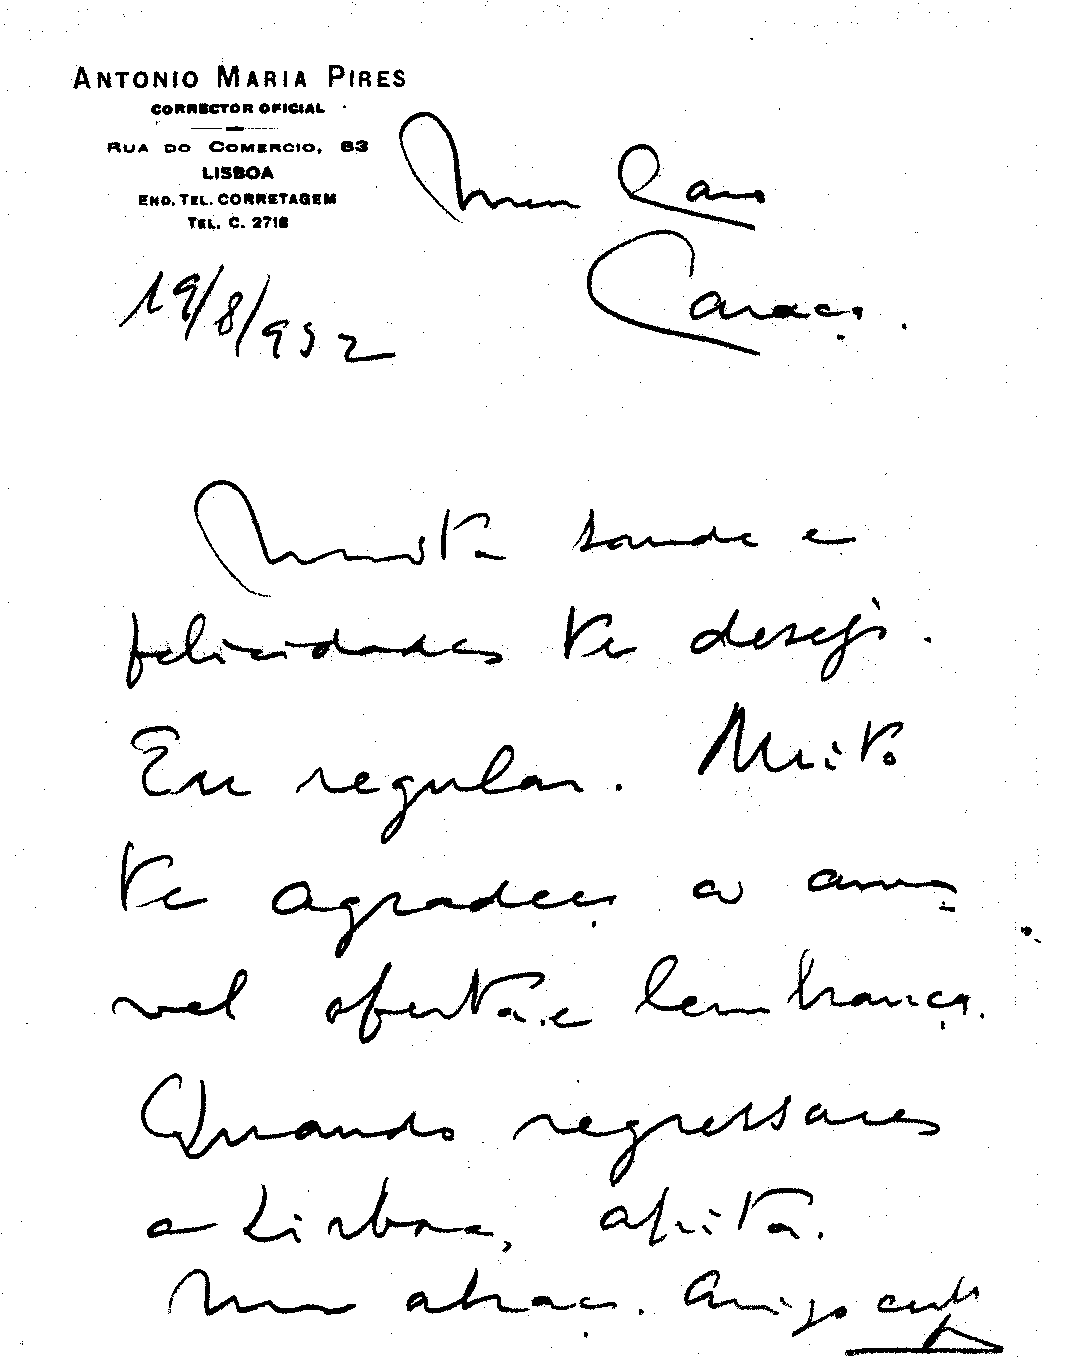 ANTONIO MARIA PIRES
CORRECTOR OFICIAL
RUA DO COMERCIO, 63
LISBOA
END. TEL. CORRETAGEM
TEL. C. 2716
Meu Caro
19/8/932
Muita saude e
felicidades te desejo.
Eu regular. Muito
te agradeço a ama-
vel oferta e lembrança.
Quando regressares
a Lisboa, apita.
Um abraço. Amigo certo